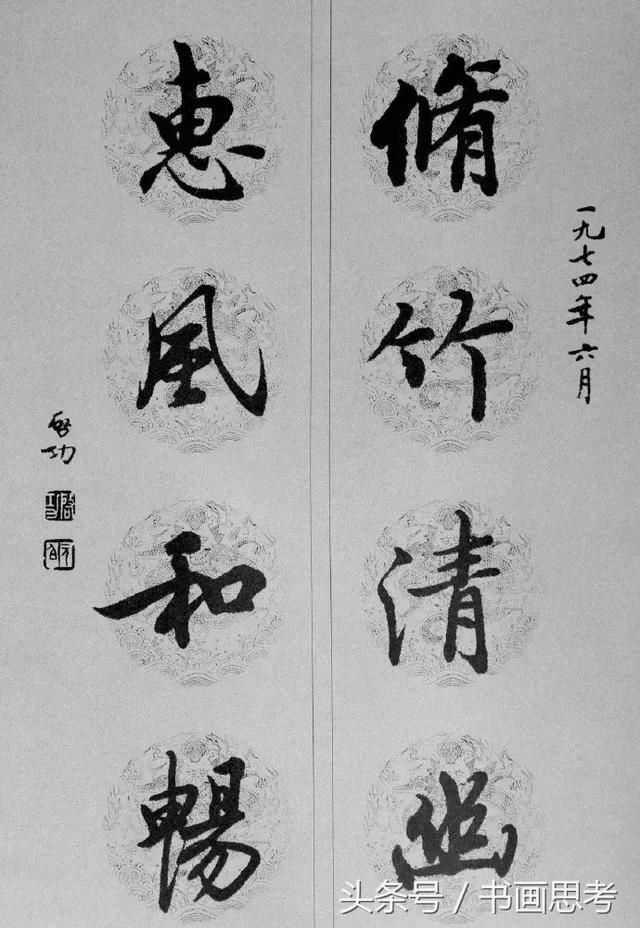 一九七四年六月
脩竹清幽
惠風和暢
啓功
头条号 / 书画思考